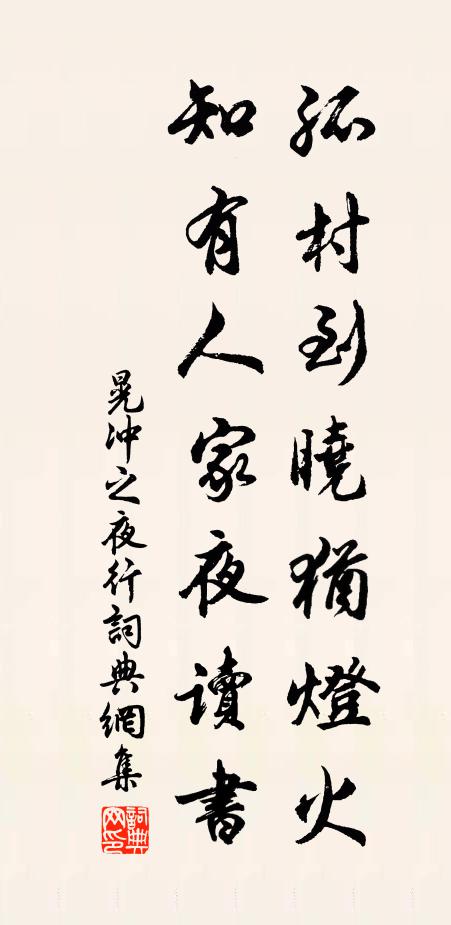 孤村到曉猶燈火
知有人家夜讀書
晁冲之夜行詞典網集
詞典網印